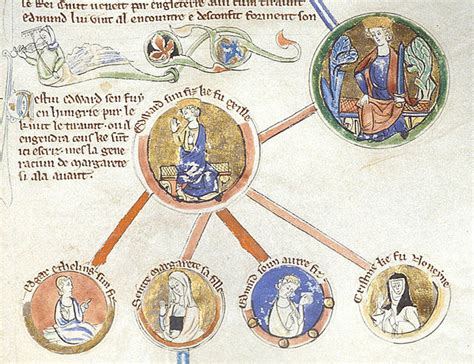 le Rei knut veneit par engletere cum tiraunt
edmund lui vint al encontre e desconfit forment son
Cestu edward sen fuy
en hungrie pur le
knut le tiraunt. ou il
engendra ceus ke sunt
ici escriz. mes la gene
raciun de margarete
si ala auant.
Edward sun fiz ke fu exille
Edgar etheling sun fiz
Seinte margarete sa fille
Edmund soun autre fiz
Cristine ke fu Noneyne